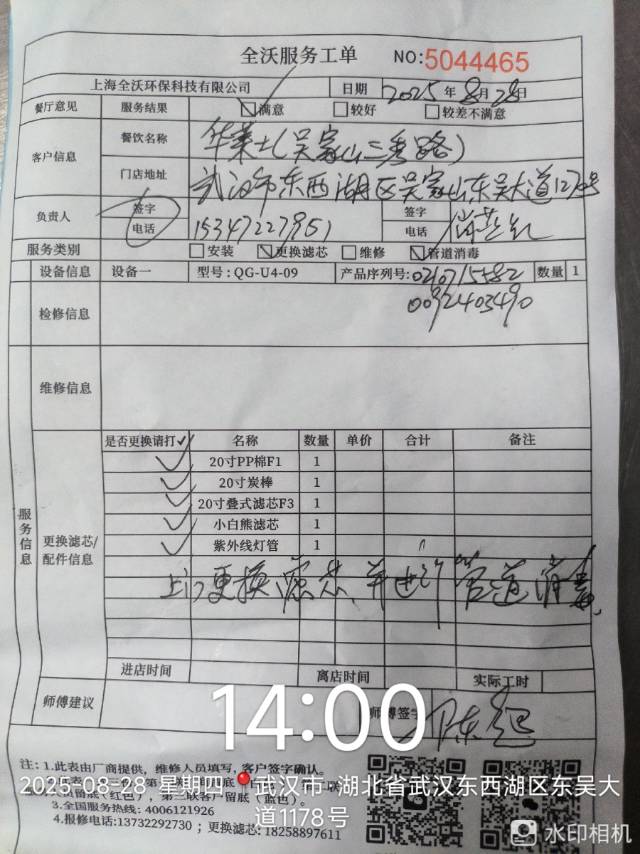 全沃服务工单 NO:5044465
上海全沃环保科技有限公司 日期 2025年8月28日
餐厅意见 服务结果 满意 较好 较差不满意
客户信息 餐饮名称 华莱士(吴家山三秀路)
门店地址 武汉市东西湖区吴家山东吴大道1278号
负责人 签字 电话 15347227951 签字 电话
服务类别 安装 更换滤芯 维修 管道消毒
设备信息 设备一 型号:QG-U4-09 产品序列号:0210715582 数量 1
0092403490
检修信息
维修信息
服务信息
更换滤芯/配件信息
是否更换请打✓ 名称 数量 单价 合计 备注
✓ 20寸PP棉F1 1
✓ 20寸炭棒 1
✓ 20寸叠式滤芯F3 1
✓ 小白熊滤芯 1
✓ 紫外线灯管 1
上门更换滤芯,并进行管道消毒
进店时间 离店时间 实际工时
师傅建议 师傅签字
14:00
注:1.此表由厂商提供,维修人员填写,客户签字确认。
2025-08-28 星期四 武汉市·湖北省武汉东西湖区东吴大道1178号
3.全国服务热线:4006121926
4.报修电话:13732292730;更换滤芯:18258897611
水印相机